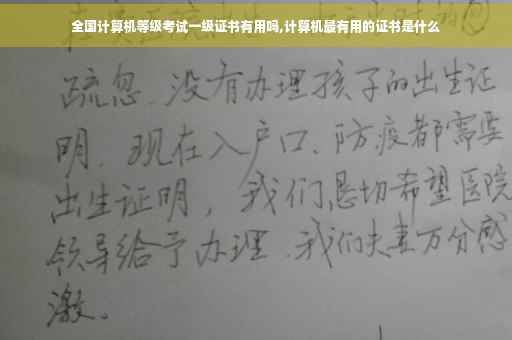 全国计算机等级考试一级证书有用吗,计算机最有用的证书是什么
疏忽、没有办理孩子的出生证
明、现在入户口、防疫都需要
出生证明，我们恳切希望医院
领导给予办理、我们夫妻万分感
激。